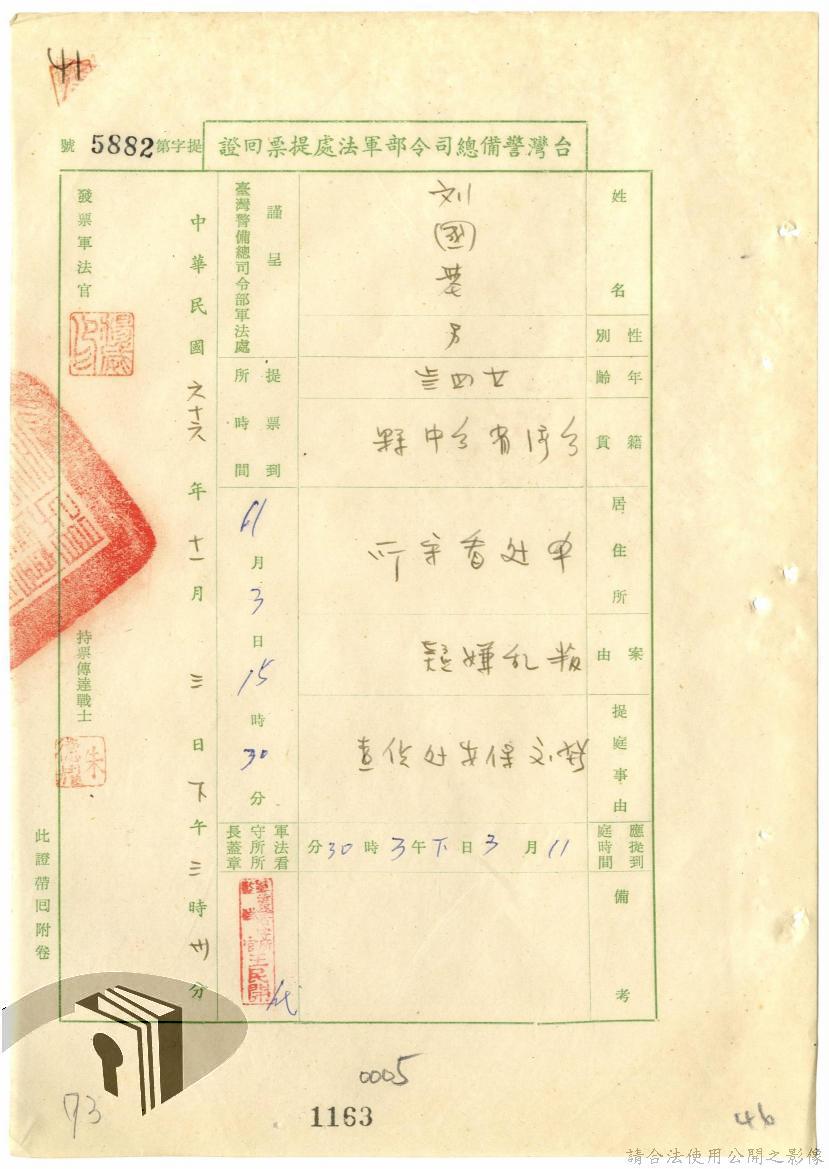 41
台灣警備總司令部軍法處提票回證
提字第5882號
姓名
刘國基
性別
男
年齡
廿四
籍貫
台湾省台中縣
居住所
軍处看守所
案由
叛乱嫌疑
提庭事由
發交保安处侦查
應提到庭時間
11月3日下午3時30分
備考
謹呈
臺灣警備總司令部軍法處
提票到所時間
11月3日15時30分
軍法看守所所長蓋章
代
中華民國六十六年十一月三日下午三時卅分
發票軍法官
持票傳達戰士
朱
此證帶回附卷
0005
1163
73
46
請合法使用公開之影像